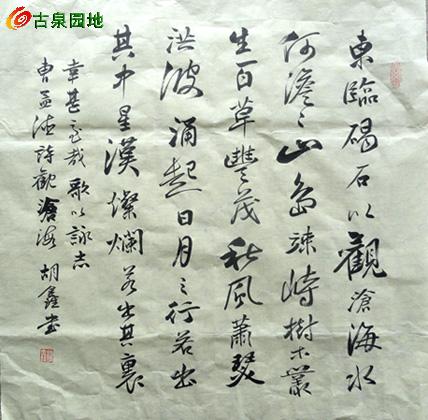 古泉园地
東臨碣石以觀滄海水
何澹〻山島竦峙樹木叢
生百草豐茂秋風蕭瑟
洪波涌起日月之行若出
其中星漢燦爛若出其裏
幸甚至哉歌以詠志
曹孟德詩觀滄海 胡鑫書